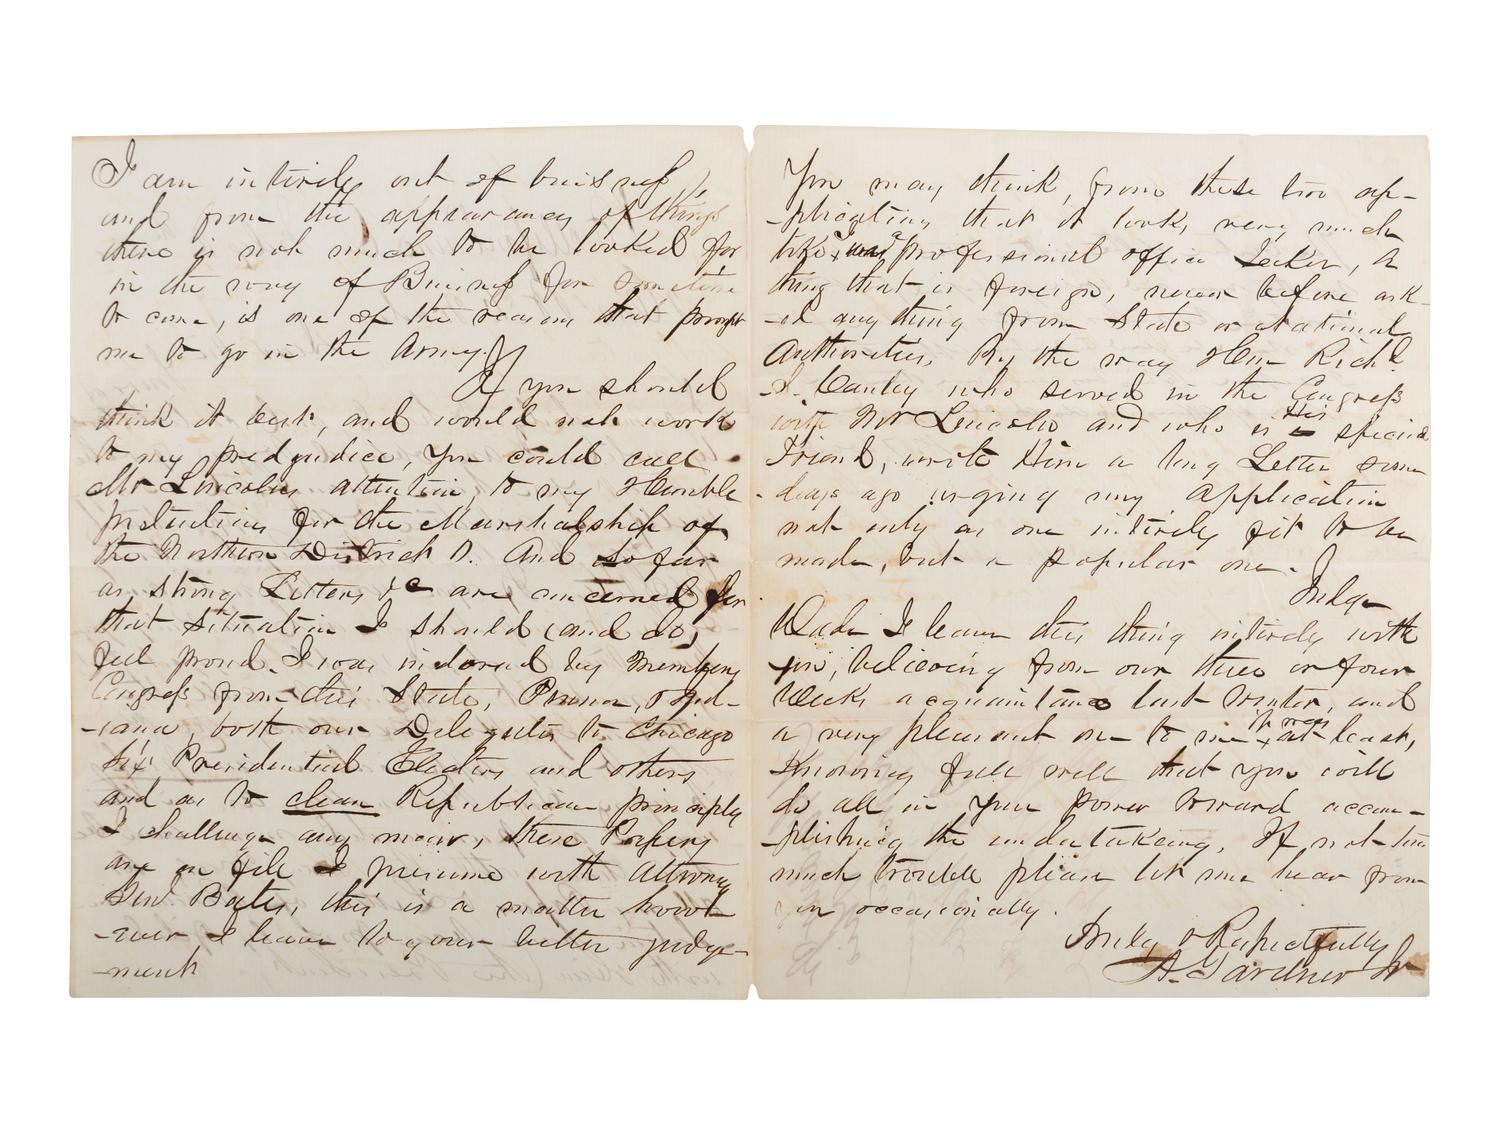 I am intirely out of buisness,
and from the appearancy of things
there is not much to be looked for
in the way of Buisness for sometime
to come, is one of the reasons that prompt
me to go in the Army.
If you should
think it best, and would not work
to my predjudice, you could call
Mr Lincolns attention, to my Humble
pretentions for the Marshalship of
the Northern District O. And so far
as strong Letters &c are concerned for
that situation I should (and do)
feel proud. I was indorsed by Members
Congress from this State, Penna, & Ind-
-iana, both our Delegates to Chicago
six Presidential Electors and others
and as to clean Republican principles
I challenge any man, these Papers
are on file I presume with Attorney
Genl Bates, this is a matter howe-
-ever, I leave to your better judge-
-ment
You may think, from these two ap-
-plications that it looks very much
like I was a professional office Seeker, a
thing that is foreign, never before ask-
-ed any thing from State or National
Authorities, By the way Hon Richd
S. Canby who served in the Congress
with Mr Lincoln and who is His special
Friend, write Him a long Letter some
days ago urging my application
not only as one intirely fit to be
made, but a popular one.
Judge
Wade I leave this thing intirely with
you, believing from our three or four
Weeks acquaintance last winter, and
a very pleasant one to me it was at least,
Knowing full well that you will
do all in your power toward accom-
-plishing the undertakeing, If not too
much trouble please let me hear from
you occasionally.
Truly & Respectfully
A. Gardner Jr